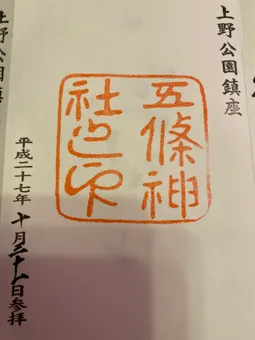 上野公園鎮座
五條神
社之印
平成二十七年十月三十一日参拝
上野公園鎮